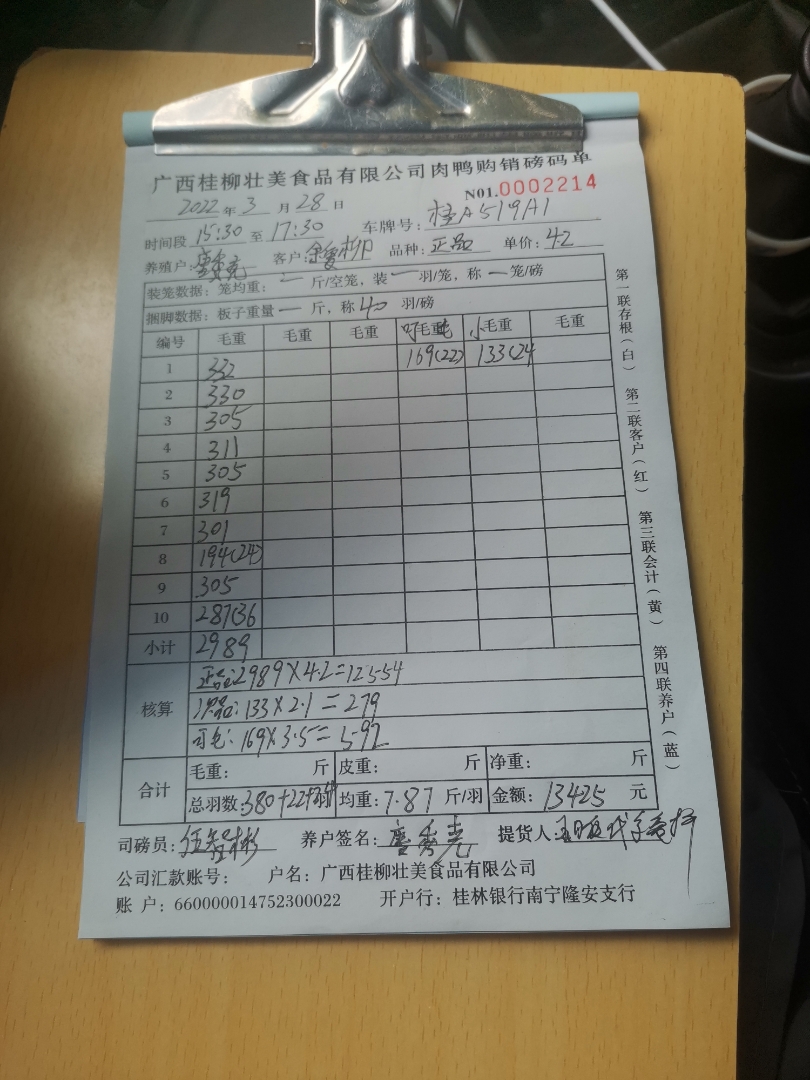 广西桂柳壮美食品有限公司肉鸭购销磅码单
N01.0002214
2022年3月28日
时间段 15:30 至 17:30 车牌号: 桂A519A1
养殖户: 客户: 品种: 正品 单价: 4.2
装笼数据: 笼均重: 一 斤/空笼, 装 一 羽/笼, 称 一 笼/磅
捆脚数据: 板子重量 一 斤, 称 40 羽/磅
编号 毛重 毛重 毛重 毛重 小毛重 毛重
1 332 169(22) 133(24
2 330
3 305
4 311
5 305
6 319
7 301
8 194(24)
9 305
10 287(36
小计 2989
核算 正品: 2989×4.2=12554
次品: 133×2.1=279
169×3.5=592
合计 毛重: 斤 皮重: 斤 净重: 斤
总羽数: 380+22+24羽 均重: 7.87 斤/羽 金额: 13425 元
司磅员: 养户签名: 唐秀克 提货人:
公司汇款账号: 户名: 广西桂柳壮美食品有限公司
账 户: 660000014752300022 开户行: 桂林银行南宁隆安支行
第一联存根(白) 第二联客户(红) 第三联会计(黄) 第四联养户(蓝)